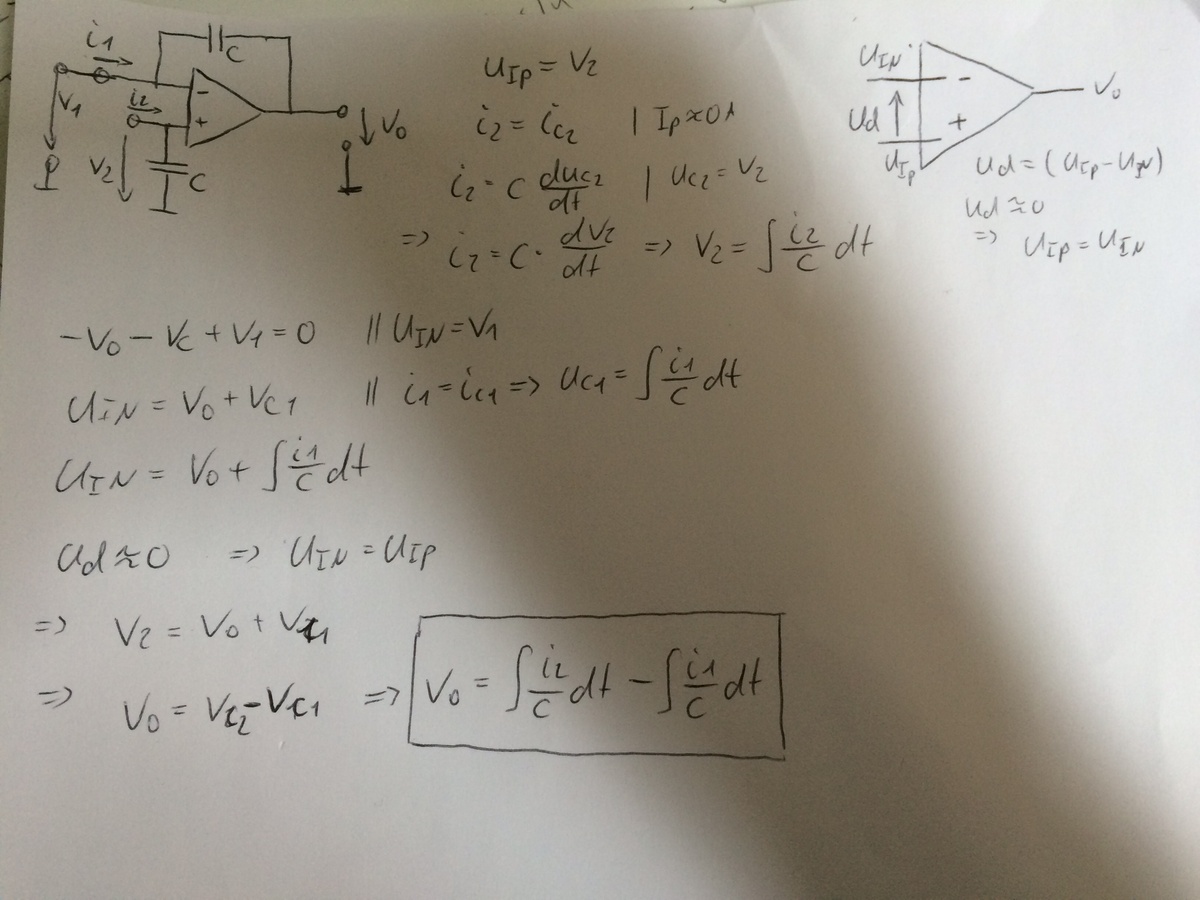 i1
C
V1
i2
-
+
V0
V2
C
UIp = V2
i2 = iC2 | Ip ≈ 0A
i2 = C duC2/dt | UC2 = V2
=> i2 = C · dV2/dt => V2 = ∫ i2/C dt
UIN
-
V0
Ud
+
UIp
Ud = (UIp - UIN)
Ud ≈ 0
=> UIp = UIN
-V0 - VC + V1 = 0 || UIN = V1
UIN = V0 + VC1 || i1 = iC1 => UC1 = ∫ i1/C dt
UIN = V0 + ∫ i1/C dt
Ud ≈ 0 => UIN = UIP
=> V2 = V0 + VC1
=> V0 = VC2 - VC1 => V0 = ∫ i2/C dt - ∫ i1/C dt